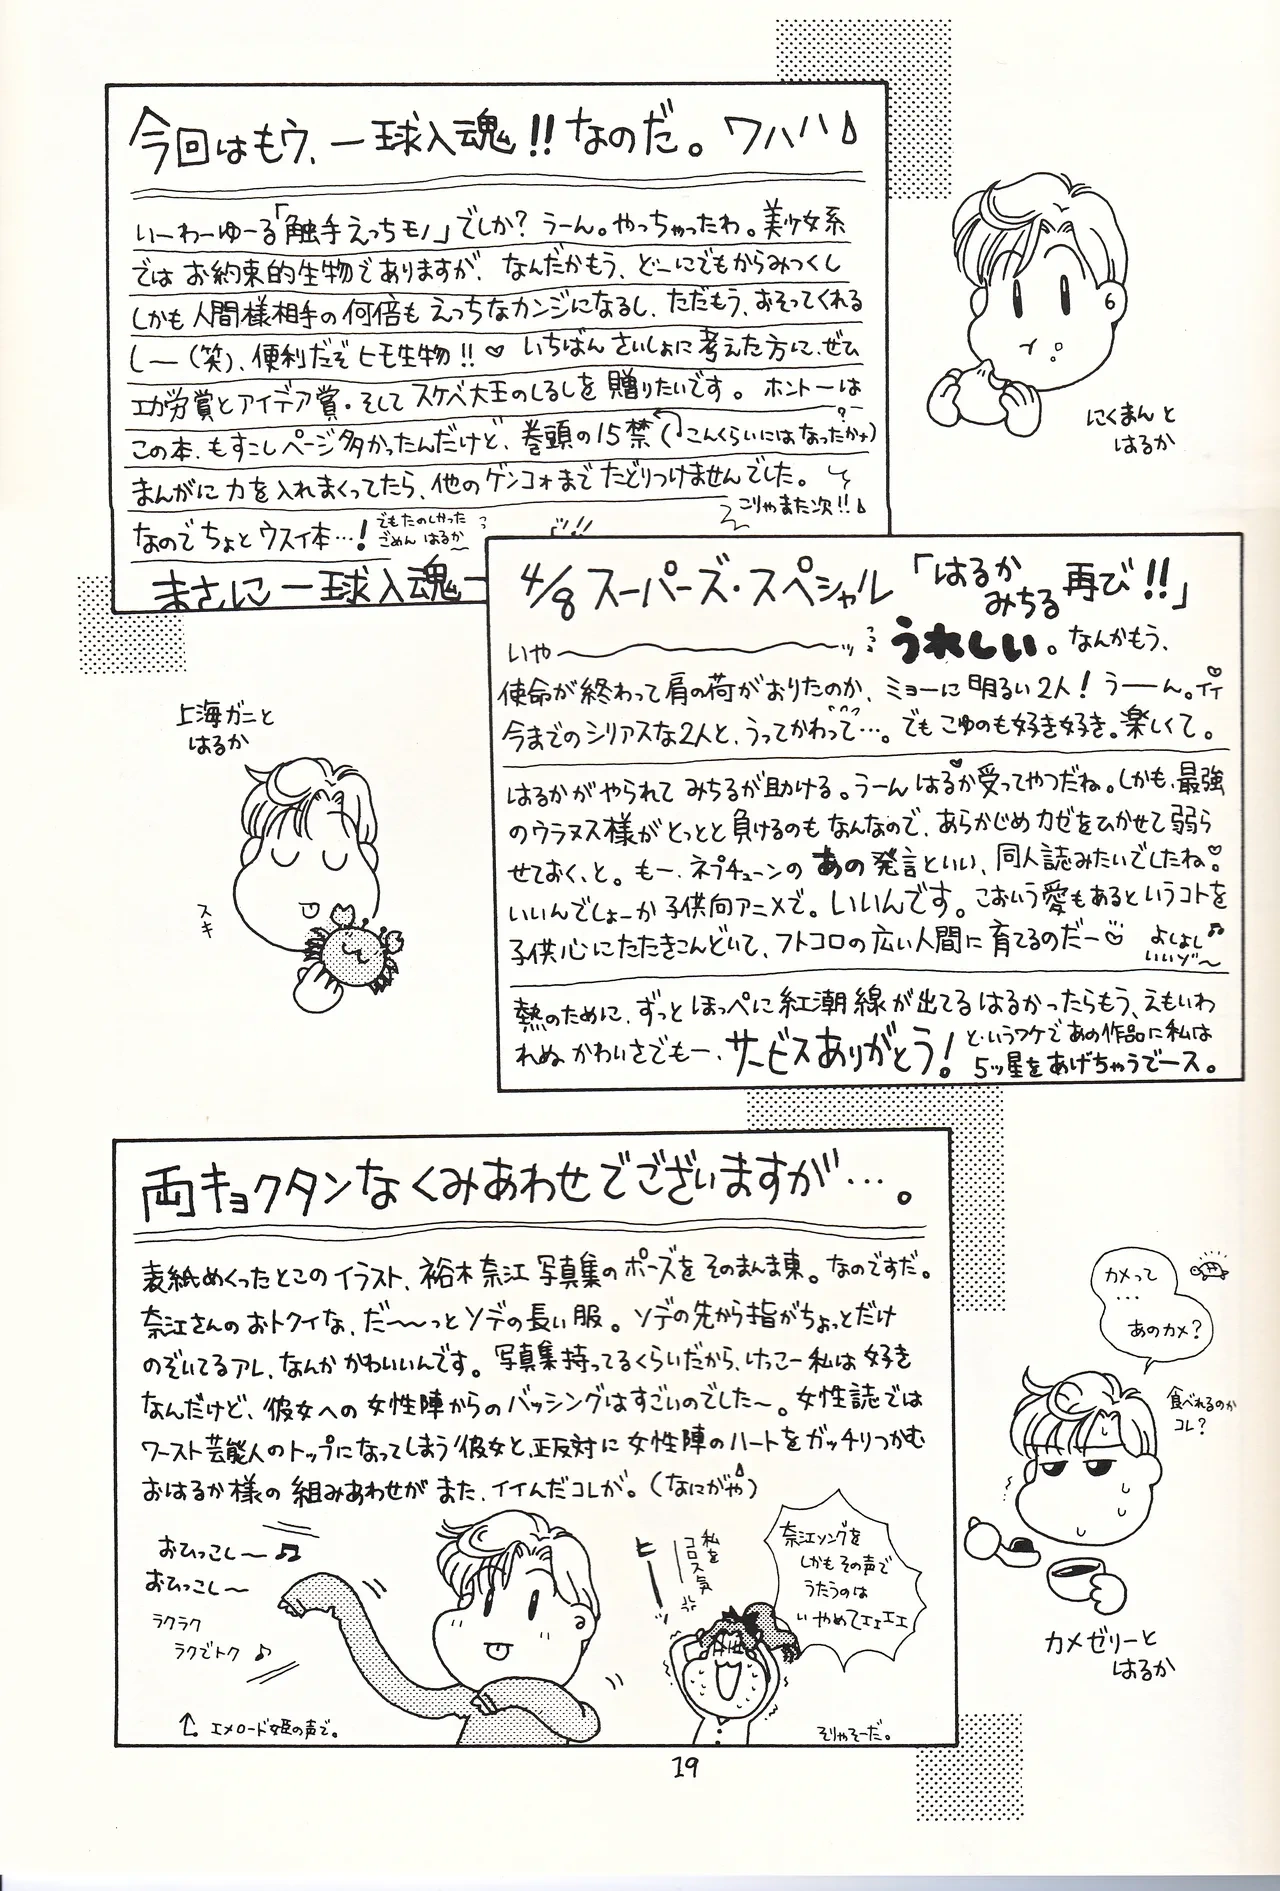 今回はもウ、一球入魂!! なのだ。ワハハ♪
いーわーゆーる「触手えっちモノ」でしか? うーん。やっちゃったわ。美少女系
ではお約束的生物でありますが、なんだかもう、どーにでもからみつくし
しかも人間様相手の何倍もえっちなカンジになるし、ただもう、おそってくれる
しー(笑)、便利だぞヒモ生物!!♡ いちばんさいしょに考えた方に、ぜひ
エガ労賞とアイデア賞・そしてスケベ大王のしるしを贈りたいです。ホントーは
この本、もすこしページ多かったんだけど、巻頭の15禁(こんくらいにはなったかナ?)
まんがに力を入れまくってたら、他のゲンコォまでたどりつけませんでした。
こりゃまた次!!♪
なのでちょとウスイ本…!
でもたのしかった
ごめん はるか〜
まさに一球入魂ー
にくまんと
はるか
4/8 スーパーズ・スペシャル「はるかみちる再び!!」
いや〜〜〜ッ うれしい。なんかもう、
使命が終わって肩の荷がおりたのか、ミョーに明るい2人! うーん。イイ♡
今までのシリアスな2人と、うってかわって…。でもこゆのも好き好き。楽しくて。
はるかがやられてみちるが助ける。うーんはるか受ってやつだね♡。しかも、最強
のウラヌス様がとっとと負けるのもなんなので、あらかじめカゼをひかせて弱ら
せておく、と。もー、ネプチューンのあの発言といい、同人誌みたいでしたね♡
いいんでしょーか子供向アニメで。いいんです。こおいう愛もあるというコトを
子供心にたたきこんどいて、フトコロの広い人間に育てるのだー♡ よしよし♪
いいゾ〜
熱のために、ずっとほっぺに紅潮線が出てるはるかったらもう、えもいわ
れぬかわいさでもー、サービスありがとう! というワケであの作品に私は
5ッ星をあげちゃうでース。
上海ガニと
はるか
スキ
両キョクタンなくみあわせでございますが…。
表紙めくったとこのイラスト、裕木奈江写真集のポーズをそのまんま東。なのですだ。
奈江さんのおトクイな、だ〜〜っとソデの長い服。ソデの先から指がちょっとだけ
のぞいてるアレ、なんかかわいいんです。写真集持ってるくらいだから、けっこー私は好き
なんだけど、彼女への女性陣からのバッシングはすごいのでした〜。女性誌では
ワースト芸能人のトップになってしまう彼女と、正反対に女性陣のハートをガッチリつかむ
おはるか様の組みあわせがまた、イイんだコレが。(なにがや)
おひっこし〜♫
おひっこし〜
ラクラク
ラクでトク♪
エメロード姫の声で。
ヒーーッ
私を
コロス気
奈江ソングを
しかもその声で
うたうのは
いやめてェェェェ
そりゃそーだ。
カメって
…
あのカメ?
食べれるのか
コレ?
カメゼリーと
はるか
19